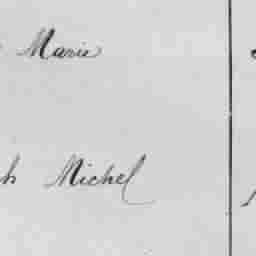 Marie
h Michel